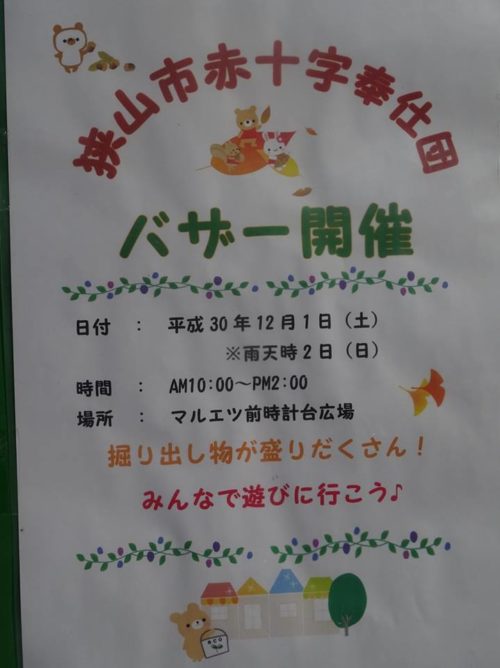 狭山市赤十字奉仕団
バザー開催
日付 : 平成30年12月1日(土)
※雨天時2日(日)
時間 : AM10:00～PM2:00
場所 : マルエツ前時計台広場
掘り出し物が盛りだくさん!
みんなで遊びに行こう♪
eco